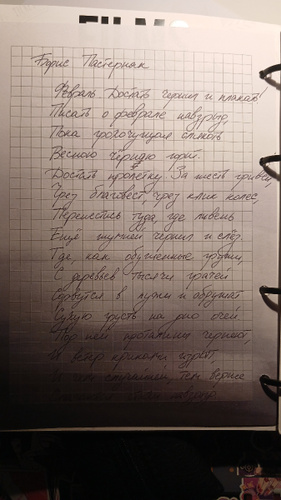 Борис Пастернак
Февраль. Достать чернил и плакать!
Писать о феврале навзрыд,
Пока грохочущая слякоть
Весною чёрною горит.
Достать пролётку. За шесть гривен,
Чрез благовест, чрез клик колёс,
Перенестись туда, где ливень
Ещё шумней чернил и слёз.
Где, как обугленные груши,
С деревьев тысячи грачей
Сорвутся в лужи и обрушат
Сухую грусть на дно очей.
Под ней проталины чернеют,
И ветр криками изрыт,
И чем случайней, тем вернее
навзрыд